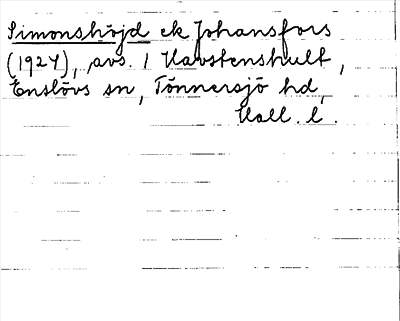 Simonshöjd ek Johansfors
(1927), avs. 1 Kavstenshult,
Enslövs sn, Tönnersjö hd,
Hall. l.